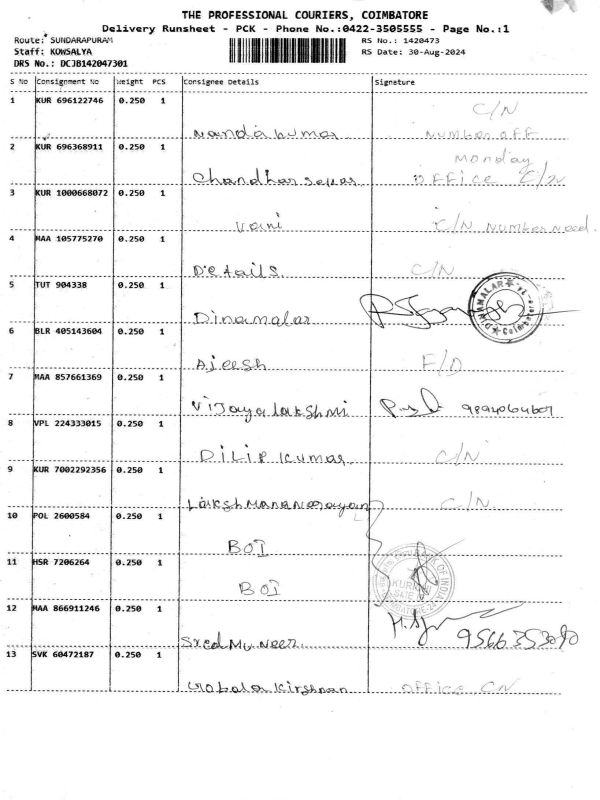 THE PROFESSIONAL COURIERS, COIMBATORE
Delivery Runsheet - PCK - Phone No.:0422-3505555 - Page No.:1
Route: SUNDARAPURAM RS No.: 1420473
Staff: KOWSALYA RS Date: 30-Aug-2024
DRS No.: DCJB142047301
S No Consignment No Weight PCS Consignee Details Signature
1 KUR 696122746 0.250 1 C/N
Nandakumar Number off
2 KUR 696368911 0.250 1 Monday
Chandharsekar office C/N
3 KUR 1000668072 0.250 1
Vani C/N Number Need.
4 MAA 105775270 0.250 1
Details C/N
5 TUT 904338 0.250 1 DINAMALAR Coimbatore
Dinamalar
6 BLR 405143604 0.250 1
Ajeesh F/D
7 MAA 857661369 0.250 1
Vijayalakshmi
8 VPL 224333015 0.250 1
Dilip Kumar C/N
9 KUR 7002292356 0.250 1
Lakshmananarayan C/N
10 POL 2600584 0.250 1
BOI
11 HSR 7206264 0.250 1
BOI
12 MAA 866911246 0.250 1
Syed Muneer
13 SVK 60472187 0.250 1
Gobala Kirshnan office CN